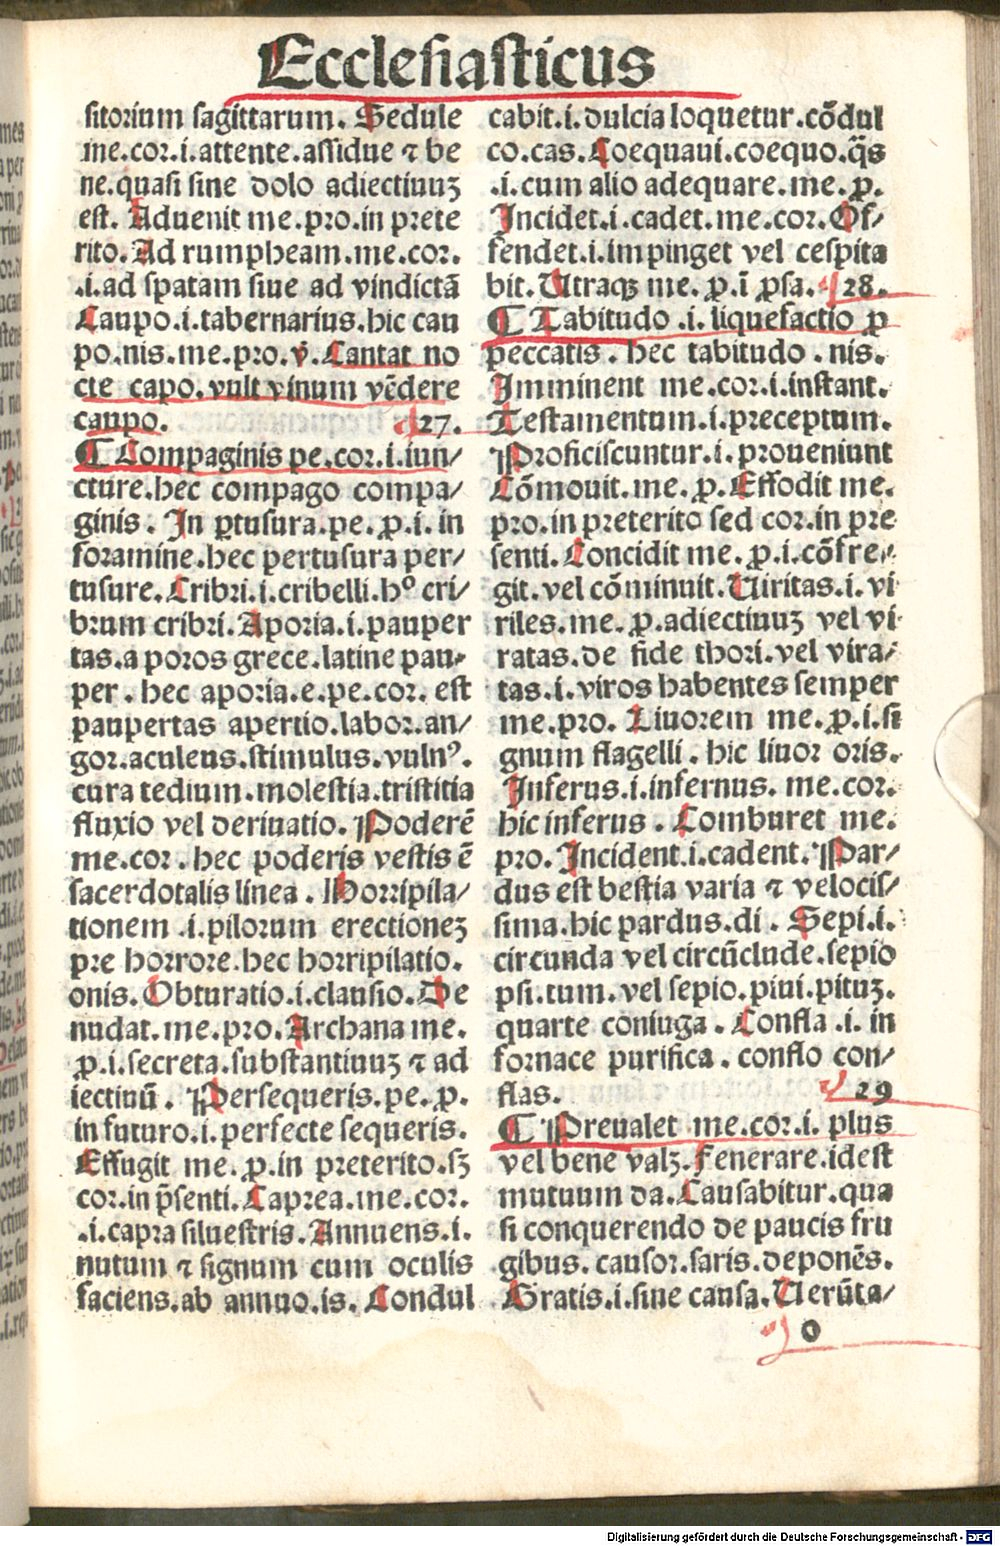 Ecclesiasticus
sitorium sagittarum. Sedule
me.cor.i.attente.assidue ⁊ be
ne.quasi sine dolo adiectiuuꝫ
est. Aduenit me.pro.in prete
rito. Ad rumpheam.me.cor.
.i.ad spatam siue ad vindictā
Caupo.i.tabernarius.hic cau
po.nis.me.pro.v̉. Cantat no
cte capo.vult vinum vēdere
caupo. 27.
¶ Compaginis pe.cor.i.iun/
cture.hec compago compa/
ginis. In ꝑtusura.pe.ꝓ.i.in
foramine.hec pertusura per/
tusure. Cribri.i.cribelli.hº cri/
brum cribri. Aporia.i.pauper
tas.a poros grece.latine pau-
per. hec aporia.e.pe.cor. est
paupertas apertio.labor.an/
gor.aculeus.stimulus.vulnꝰ.
cura tedium.molestia.tristitia
fluxio vel deriuatio. Poderē
me.cor. hec poderis vestis ē
sacerdotalis linea. Horripila/
tionem .i.pilorum erectioneꝫ
pre horrore.hec horripilatio.
onis. Obturatio.i.clausio. De
nudat.me.pro. Archana me.
ꝓ.i.secreta.substantiuuꝫ ⁊ ad
iectiuū. Persequeris.pe.ꝓ.
in futuro.i.perfecte sequeris.
Effugit me.ꝓ.in preterito.sꝫ
cor.in p̄senti. Caprea.me.cor.
.i.capra siluestris. Annuens.i.
nutum ⁊ signum cum oculis
faciens.ab annuo.is. Condul
cabit.i.dulcia loquetur.cōdul
co.cas. Coequaui.coequo.q̄s
.i.cum alio adequare.me.ꝓ.
Incidet.i.cadet.me.cor. Of/
fendet.i.impinget vel cespita
bit. Utraqꝫ me.ꝓ.ī ꝓsa. 28.
¶ Tabitudo .i. liquefactio ꝓ
peccatis. hec tabitudo.nis.
Imminent me.cor.i.instant.
Testamentum.i.preceptum.
Proficiscuntur.i.proueniunt
Cōmouit.me.ꝓ. Effodit me.
pro.in preterito sed cor.in pre
senti. Concidit me.ꝓ.i.cōfre/
git.vel cōminuit. Uiritas.i.vi
riles.me.ꝓ.adiectiuuꝫ vel vi
ratas.de fide thori.vel vira/
tas.i.viros habentes semper
me.pro. Liuorem me.ꝓ.i.si
gnum flagelli. hic liuor oris.
Inferus.i.infernus. me.cor.
hic inferus. Comburet me.
pro. Incident.i.cadent. Par/
dus est bestia varia ⁊ velocis/
sima.hic pardus.di. Sepi.i.
circunda vel circūclude.sepio
psi.tum.vel sepio.piui.pituꝫ.
quarte coniuga. Confla.i. in
fornace purifica. conflo con/
flas. 29
¶ Preualet me.cor.i. plus
vel bene valꝫ. Fenerare.idest
mutuum da. Causabitur.qua
si conquerendo de paucis fru
gibus. causor.saris.deponēs.
Gratis.i.sine causa. Uerūta/
o
Digitalisierung gefördert durch die Deutsche Forschungsgemeinschaft - DFG